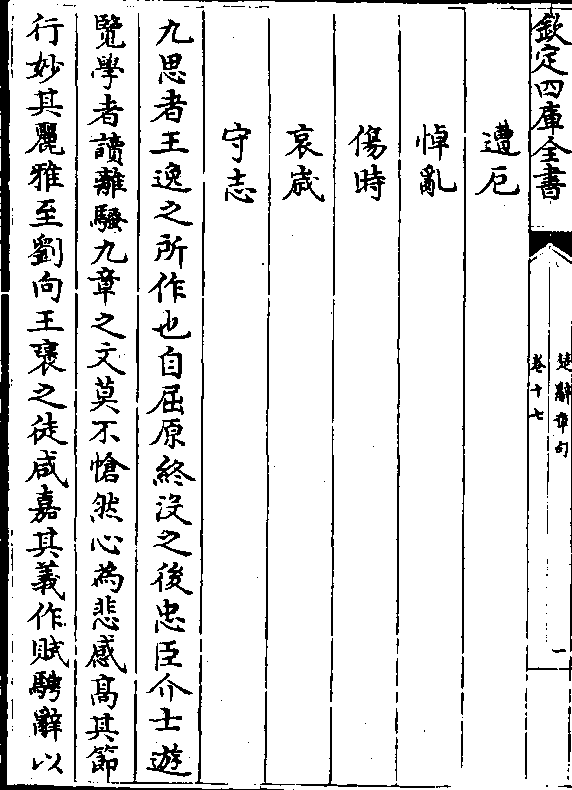 欽定四庫全書
楚辭章句
卷十七
一
遭厄
悼亂
傷時
哀歲
守志
九思者王逸之所作也自屈原終沒之後忠臣介士遊
覽學者讀離騷九章之文莫不愴然心為悲感高其節
行妙其麗雅至劉向王褒之徒咸嘉其義作賦騁辭以